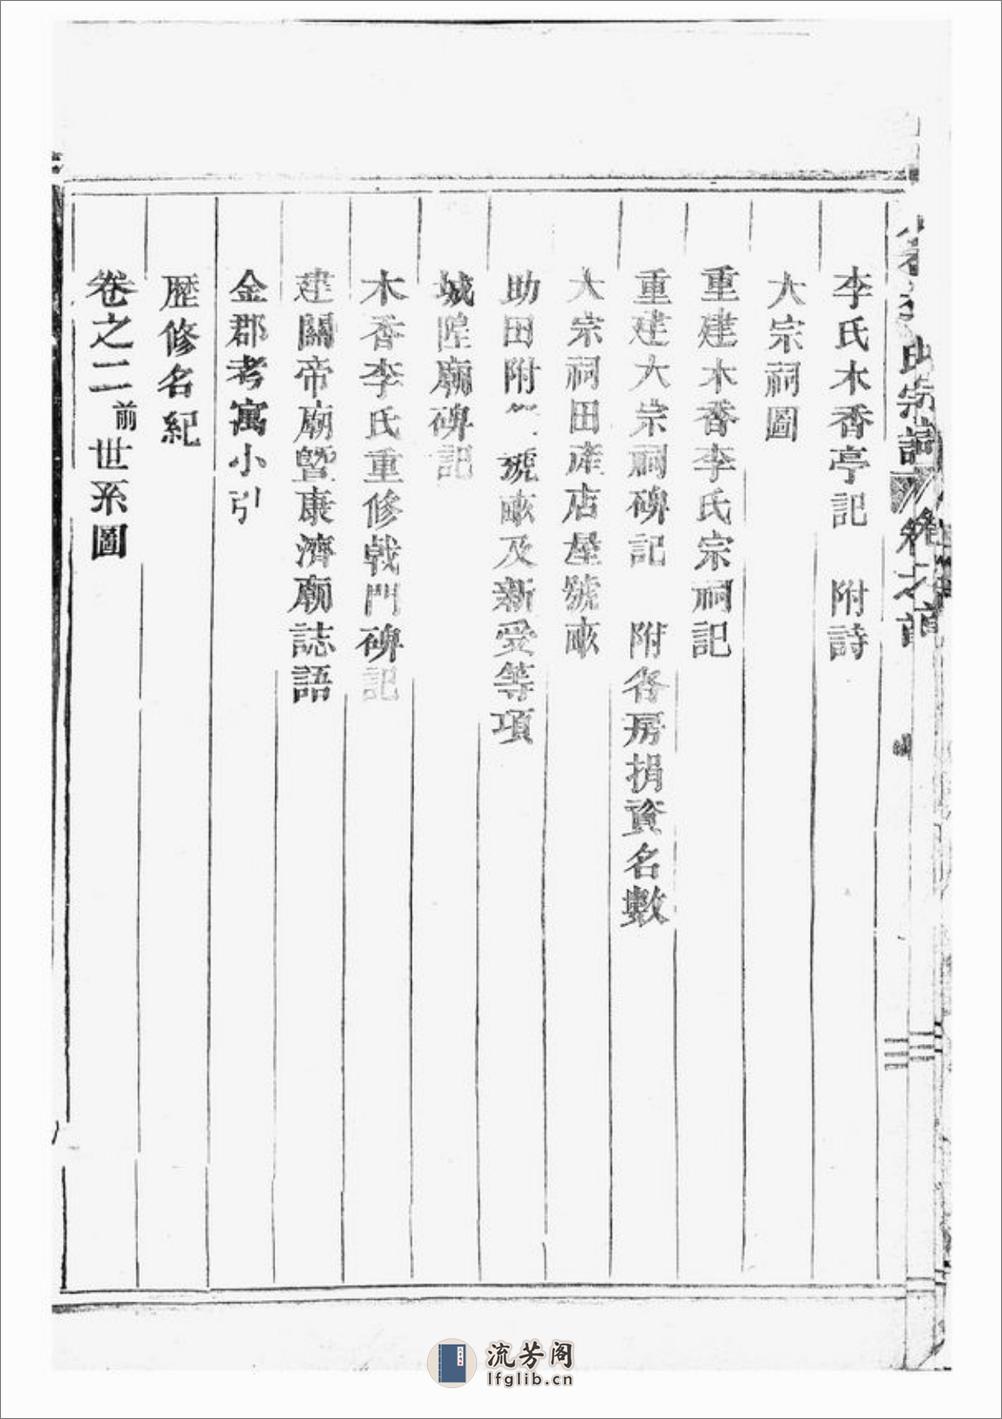 李氏木香亭記　附詩
大宗祠圖
重建木香李氏宗祠記
重建大宗祠碑記　附各房捐資名數
大宗祠田產店屋號畝
助田附　號畝及新受等項
城隍廟碑記
木香李氏重修戟門碑記
建關帝廟曁康濟廟誌語
金郡考寓小引
歷修名紀
卷之二前世系圖
流芳阁
lfglib.cn